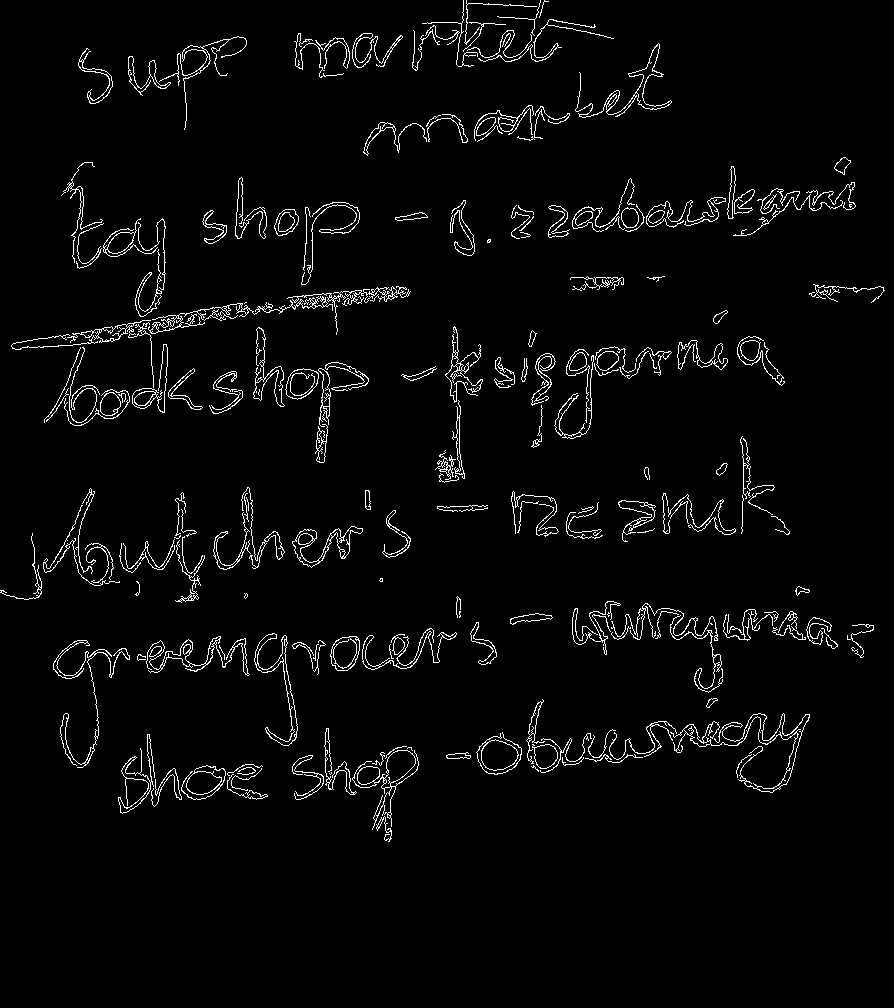 supe market
market
toy shop - s. z zabawkami
bookshop - księgarnia
butcher's - rzeźnik
greengrocer's - warzywnia
shoe shop - obuwniczy